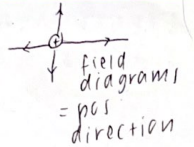 +
field
diagrams
= pos
direction